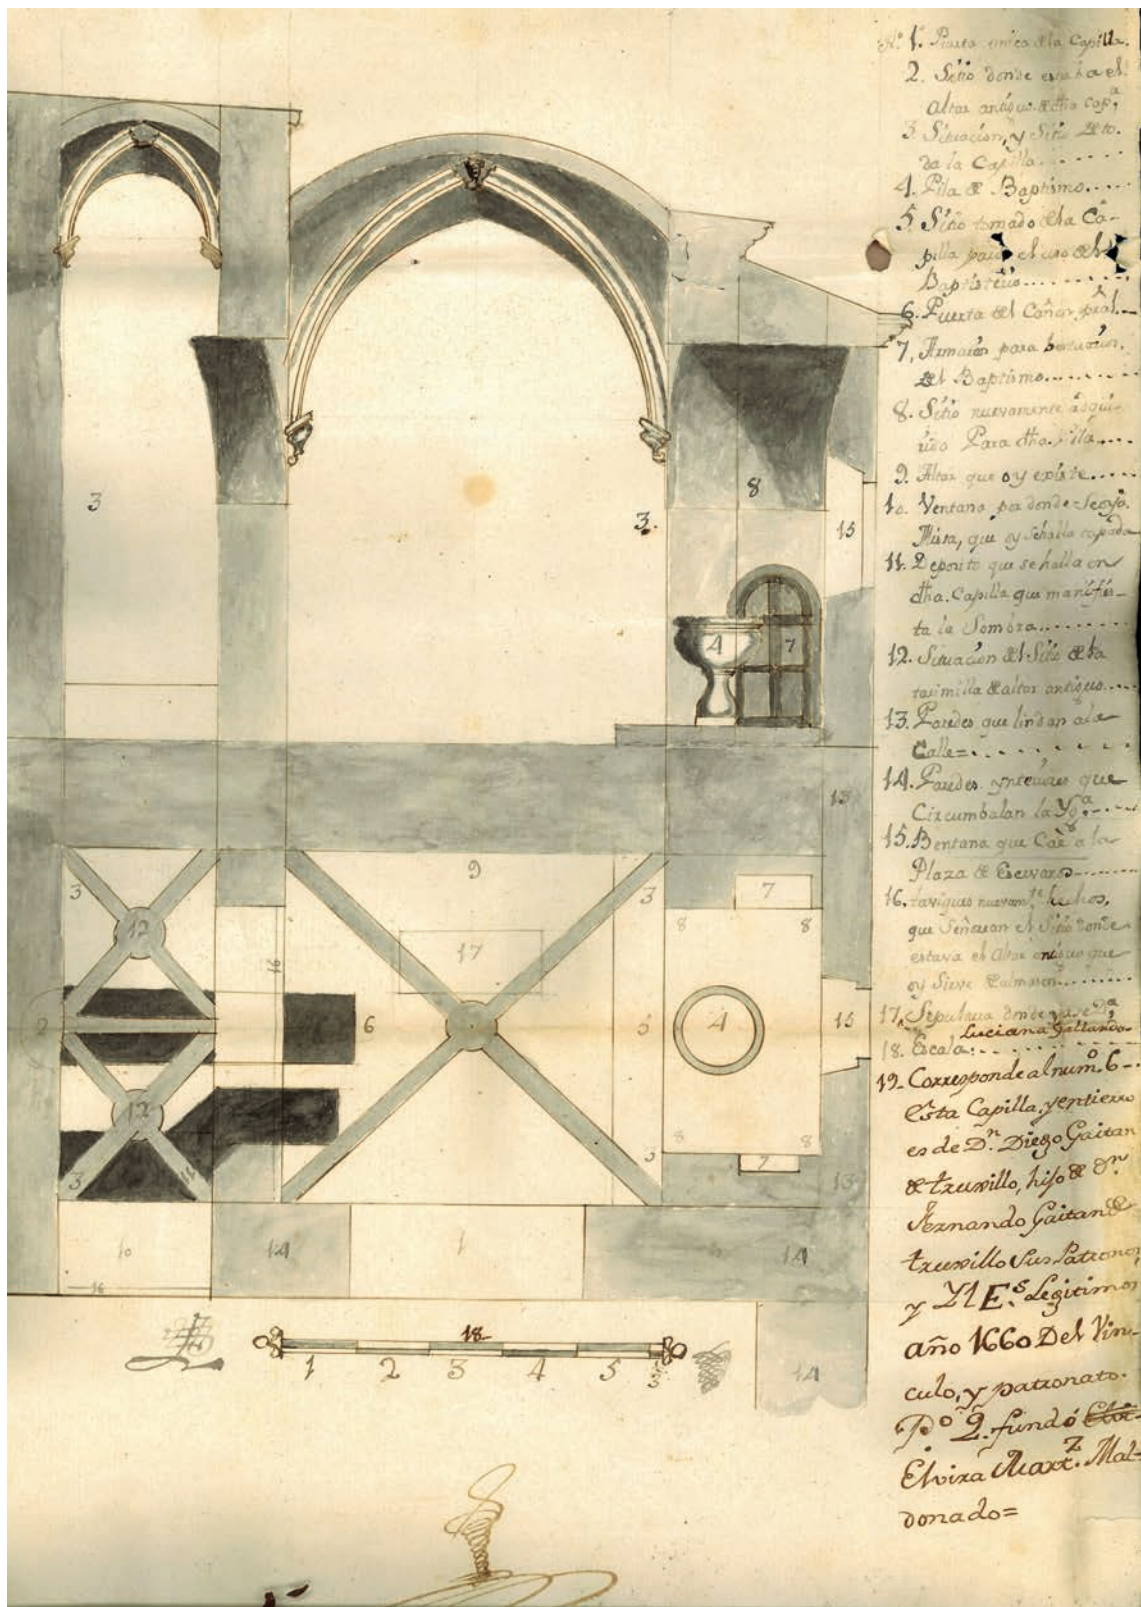 Nº 1. Puerta unica de la Capilla.
2. Sitio donde estaba el
altar antiguo de dha Capª
3. Situacion, y Sitio de to-
da la Capilla.......
4. Pila de Baptismo.....
5. Sitio tomado de la Ca-
pilla para el uso del
Baptisterio..........
6. Puerta del Cañon pral.--
7, Armarios para
del Baptismo........
8. Sitio nuevamente adqui-
rido Para dha. Pila....
9. Altar que oy existe.....
10. Ventana por donde se oya
Misa, que oy se halla tapada
11. Deposito que se halla en
dha. Capilla que manifies-
ta la Sombra.........
12. Situacion del Sitio de la
tarimilla de altar antiguo....
13. Paredes que lindan a la
Calle=. - - - - -
14. Paredes ynteriores que
Circumbalan la Ygª.----
15. Bentana que Cae a la
Plaza de Escivanos-------
16. taviques nuevamte. hechos,
que Señaran el Sitio donde
estava el altar antiguo que
oy Sirve de almazen.......
17. Sepultura donde yase Dª
Luciana Gallardo.
18. Escala:- - - - - -
19- Corresponde al num.º 6-.
Esta Capilla, y entierro
es de Dn. Diego Gaitan
de truxillo, hijo de Dn.
Fernando Gaitan de
truxillo Sus Patronos
y Legitimos
año 1660 Del Vin-
culo, y patronato.
fundó
Elvira Martz. Mal-
donado=
3
3.
8
15
4
7
13
3
9
3
7
12
17
8
8
16
2
6
3
4
15
12
8
8
3
14
3
7
13
10
14
1
14
16
18-
1 2 3 4 5
14